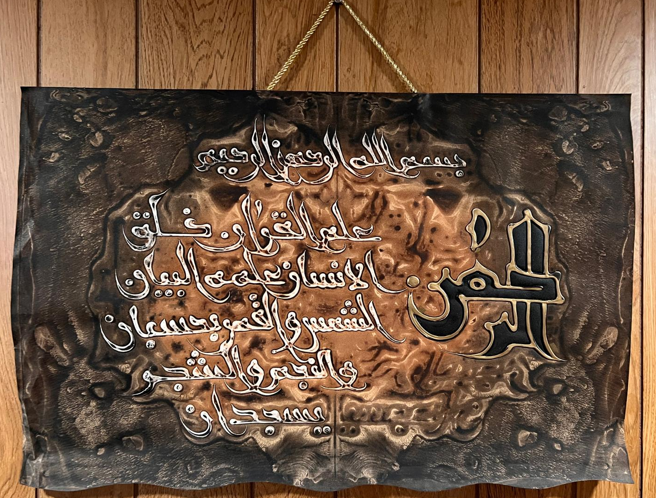 بسم الله الرحمن الرحيم
الرحمن
علم القرءان خلق
الانسان علمه البيان
الشمس والقمر بحسبان
والنجم والشجر
يسجدان